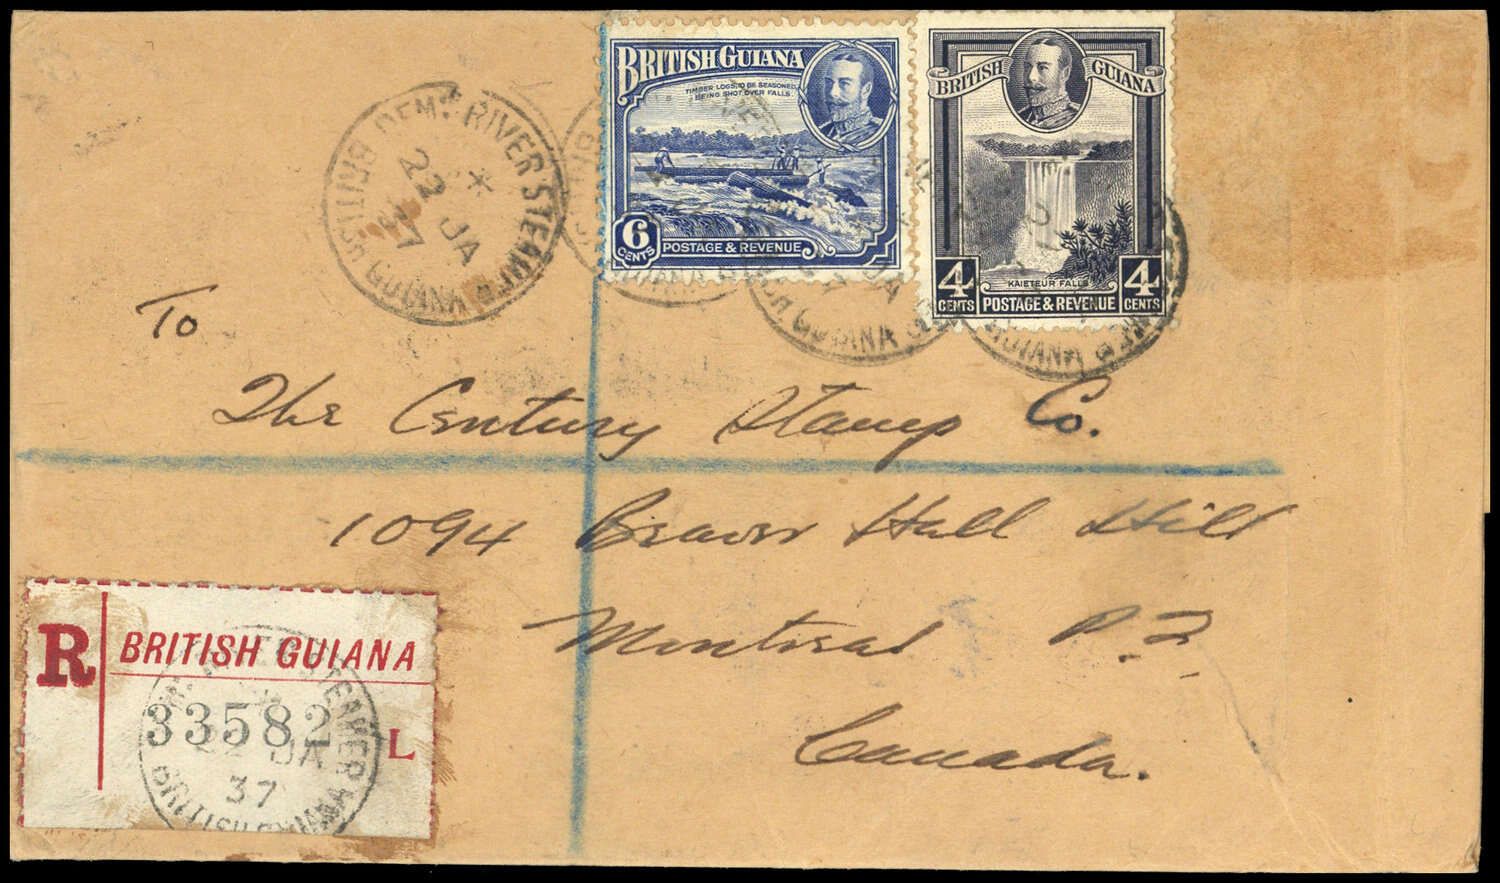 DEM. RIVER STEAMER
*
22 JA
37
BRITISH GUIANA
BRITISH GUIANA
TIMBER LOGS, TO BE SEASONED,
BEING SHOT OVER FALLS.
6
CENTS
POSTAGE & REVENUE
BRITISH GUIANA
KAIETEUR FALLS
4
CENTS
POSTAGE & REVENUE
4
CENTS
GUIANA
GUIANA
GUIANA
To
The Century Stamp Co.
1094 Beaver Hall Hill
Montreal P.Q.
Canada.
R
BRITISH GUIANA
33582
L
STEAMER
JA
37
BRITISH GUIANA